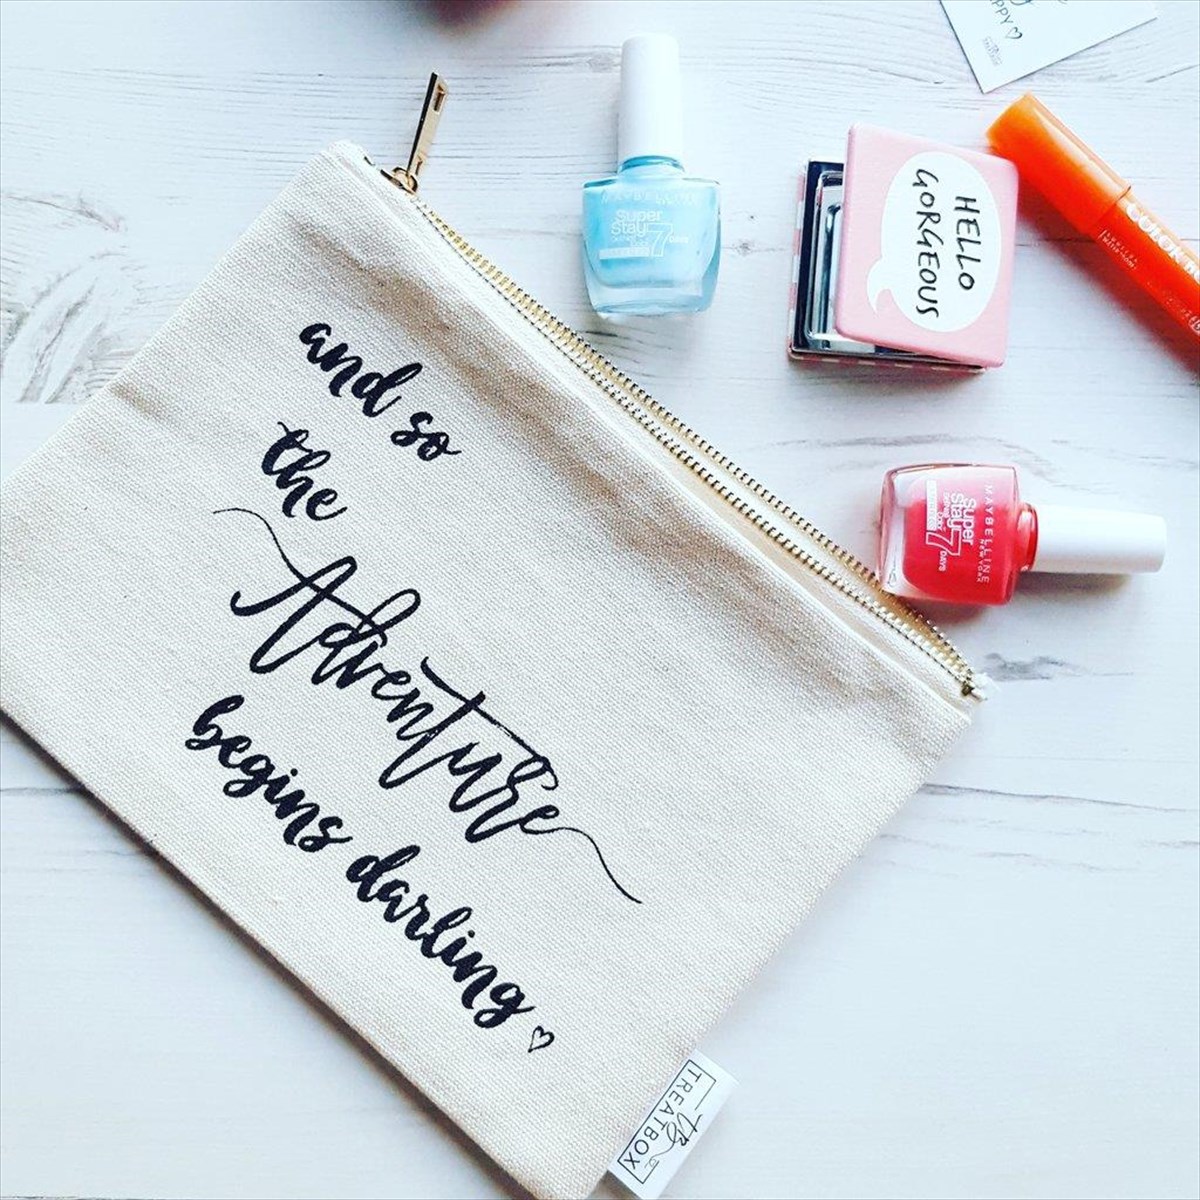 and so
the
Adventure
begins darling
TREATBOX
MAYBELLINE
Super
Stay
7 DAYS
HELLO
GORGEOUS
MAYBELLINE
NEW YORK
Super
Stay
7 DAYS
COLOR
PPY